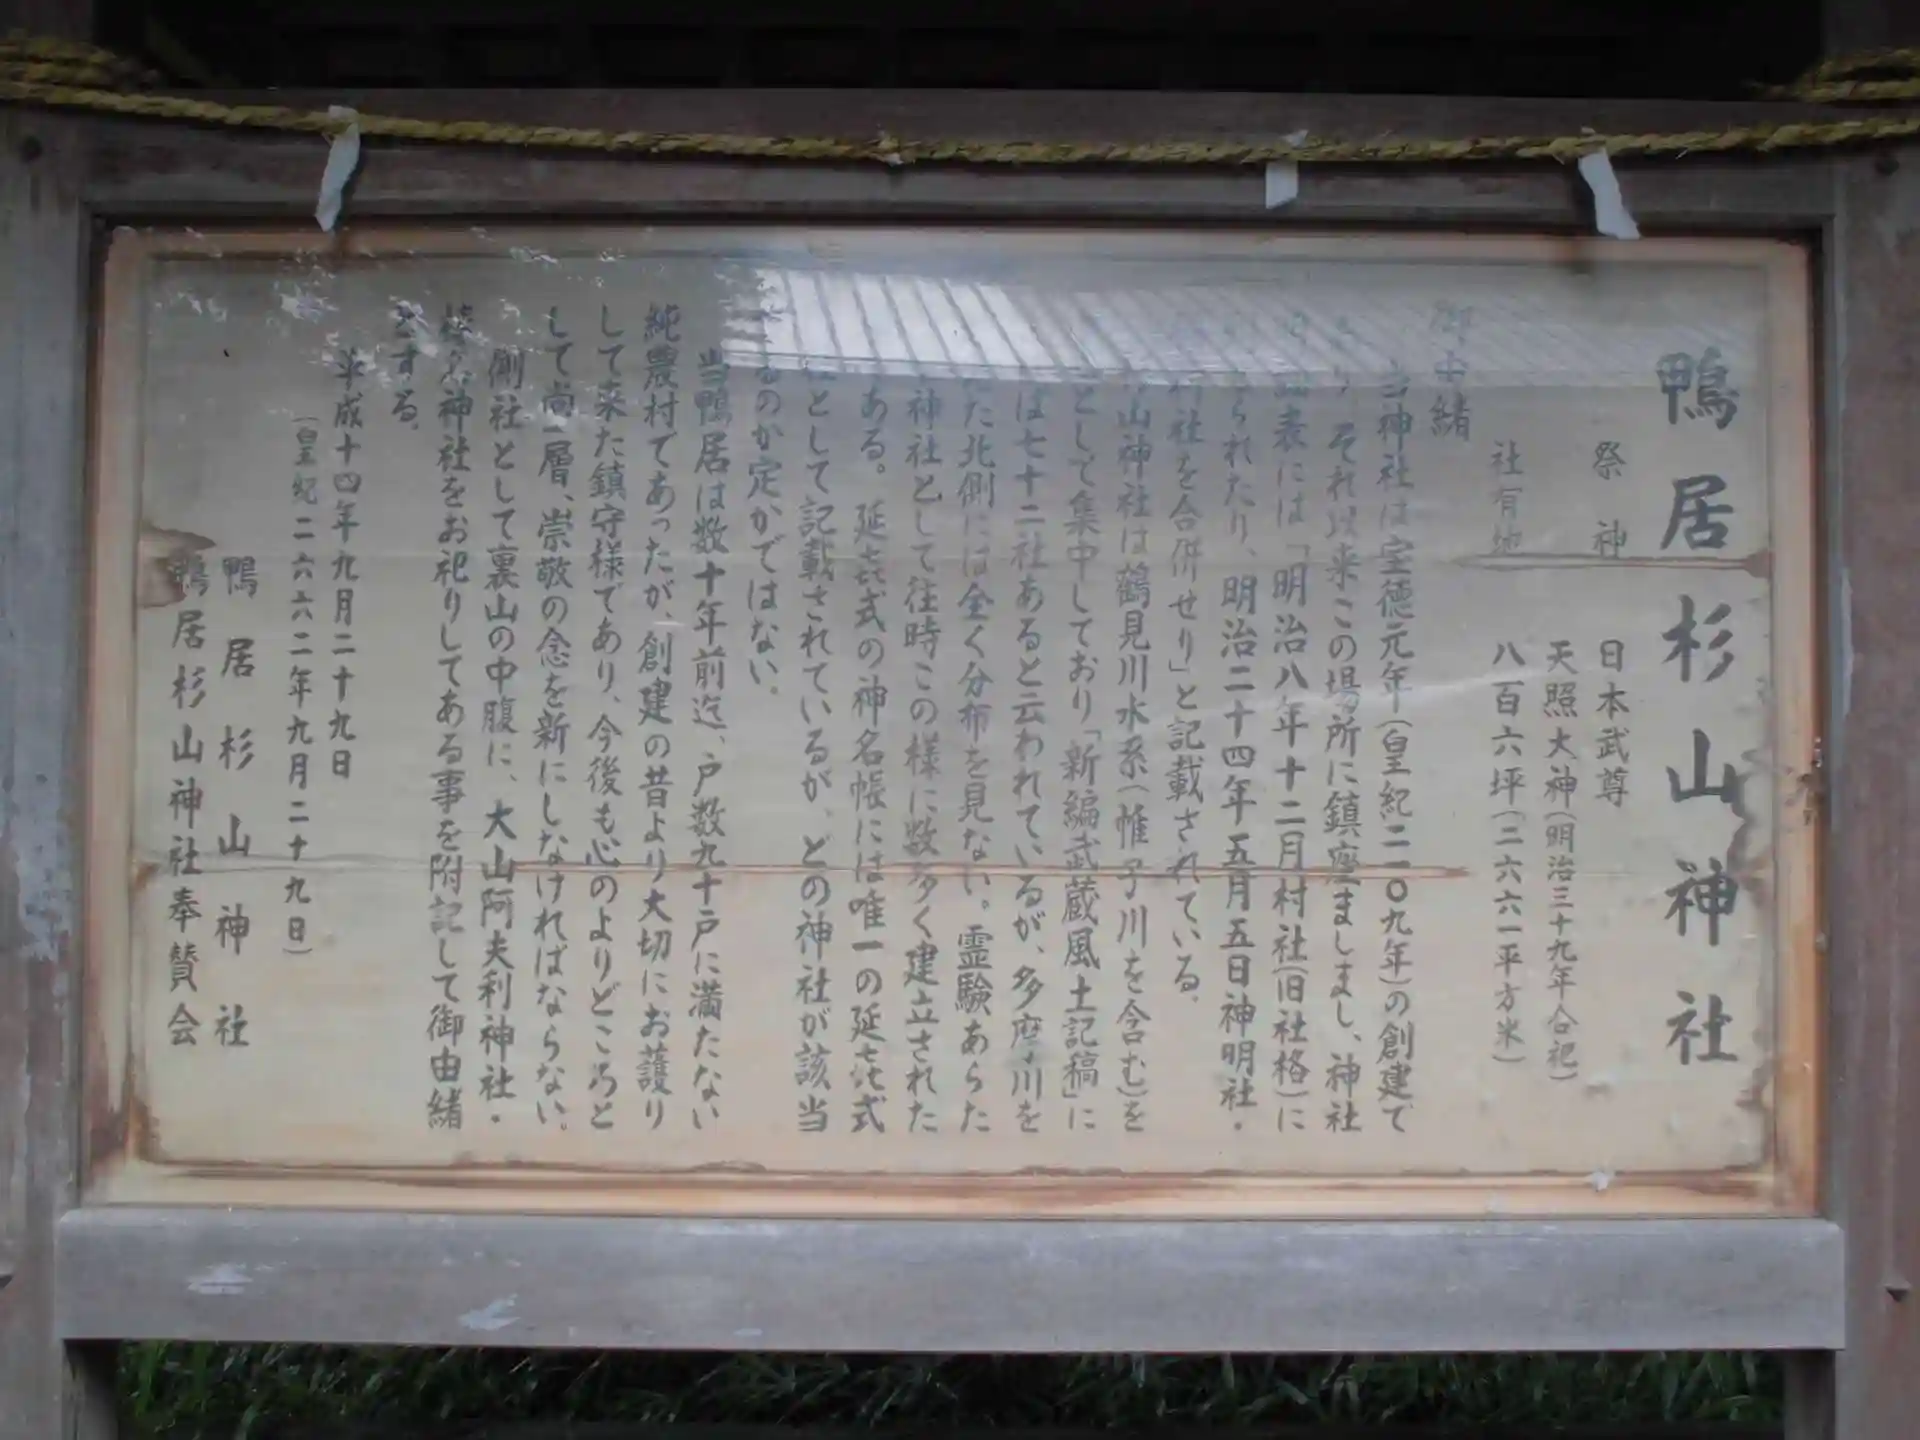 鴨居杉山神社
祭神 日本武尊
天照大神(明治三十九年合祀)
社有地 八百六坪(二六六一平方米)
御由緒
当神社は宝徳元年(皇紀二一〇九年)の創建で
それ以来この場所に鎮座ましまし、神社
表には「明治八年十二月村社(旧社格)に
られたり、明治二十四年五月五日神明社・
社を合併せり」と記載されている。
山神社は鶴見川水系(帷子川を含む)を
として集中しており「新編武蔵風土記稿」に
は七十二社あると云われているが、多摩川を
た北側には全く分布を見ない。霊験あらた
神社として往時この様に数多く建立された
ある。延㐂式の神名帳には唯一の延㐂式
社として記載されているが、どの神社が該当
るのか定かではない。
当鴨居は数十年前迄、戸数九十戸に満たない
純農村であったが、創建の昔より大切にお護り
して来た鎮守様であり、今後も心のよりどころと
して尚一層、崇敬の念を新にしなければならない。
側社として裏山の中腹に、大山阿夫利神社・
神社をお祀りしてある事を附記して御由緒
とする。
平成十四年九月二十九日
(皇紀二六六二年九月二十九日)
鴨居杉山神社
鴨居杉山神社奉賛会